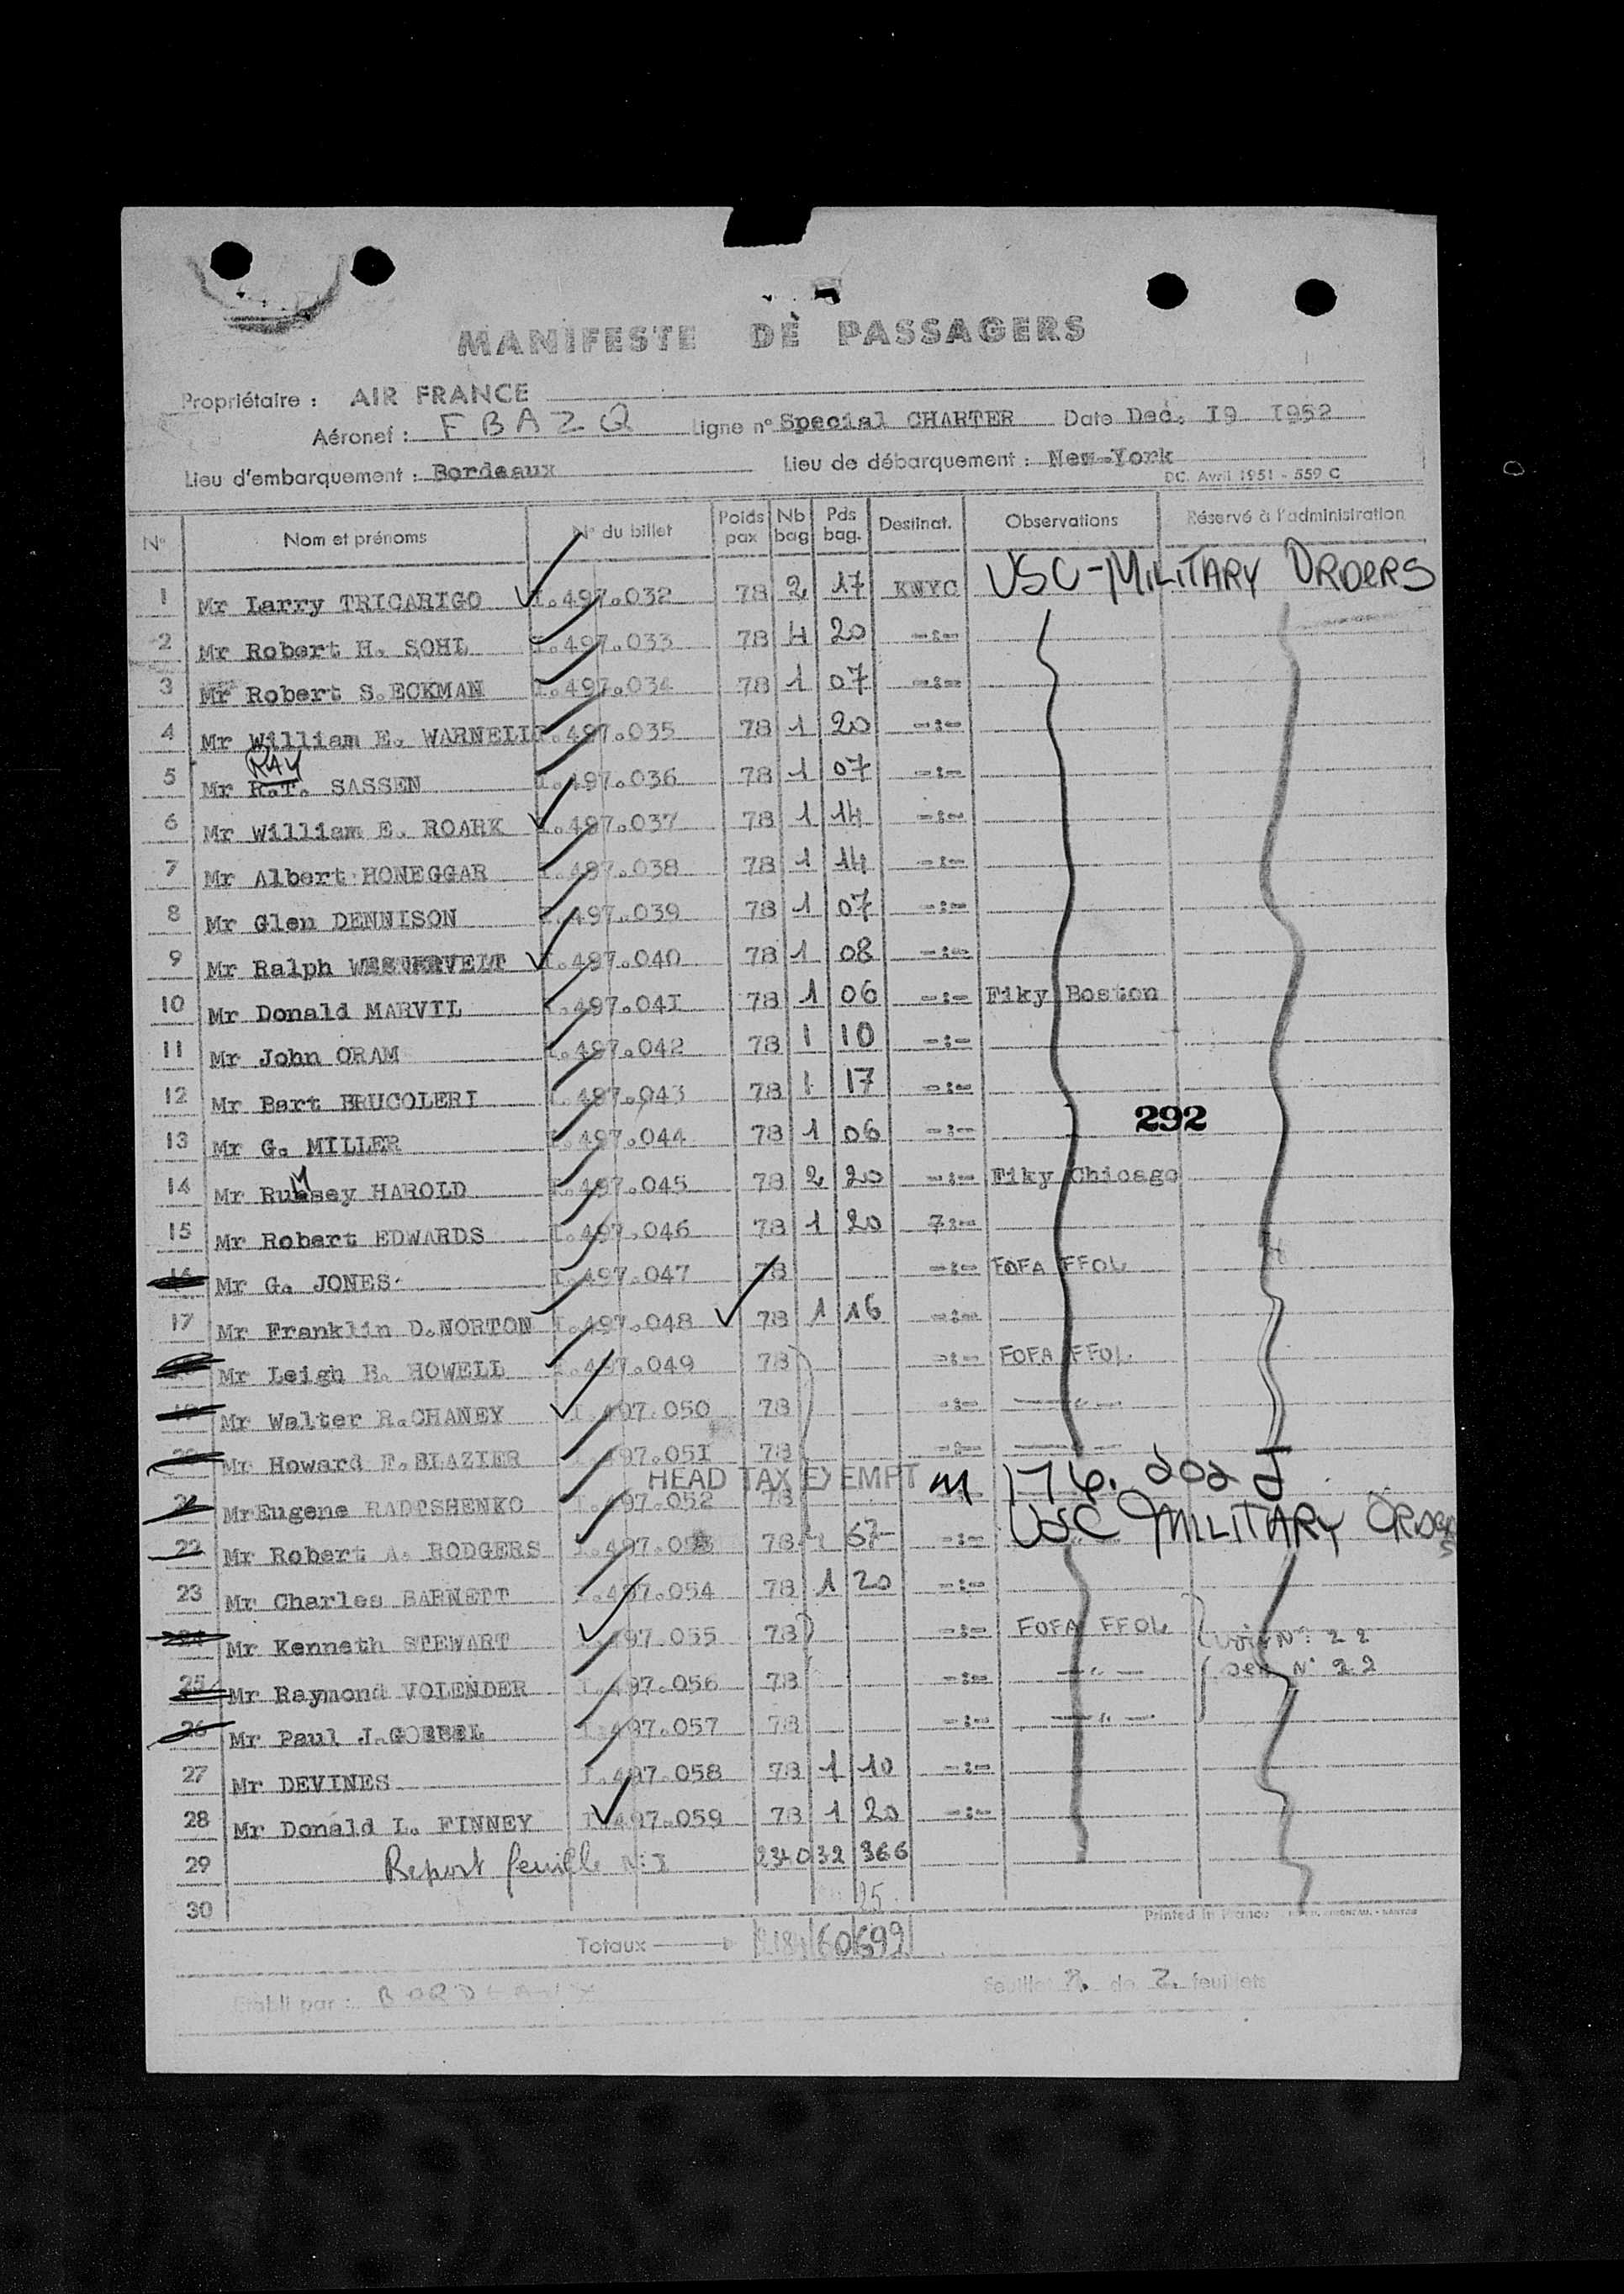 MANIFESTE DE PASSAGERS
Propriétaire : AIR FRANCE
Aéronef : FBAZQ Ligne n° Special CHARTER Date Dec. I9 I952
Lieu d'embarquement : Bordeaux Lieu de débarquement : New-York
DC. Avril 1951 - 559 C
N° Nom et prénoms N° du billet Poids pax Nb bag Pds bag. Destinat. Observations Réservé à l'administration
1 Mr Larry TRICARIGO I.497.032 78 2 17 KNYC USC-MILITARY ORDERS
2 Mr Robert H. SOHL I.497.033 78 4 20 -:-
3 Mr Robert S.ECKMAN I.497.034 78 1 07 -:-
4 Mr William E. WARNELL I.497.035 78 1 20 -:-
RAY
5 Mr R.T. SASSEN I.497.036 78 1 07 -:-
6 Mr William E. ROARK I.497.037 78 1 14 -:-
7 Mr Albert HONEGGAR I.497.038 78 1 14 -:-
8 Mr Glen DENNISON I.497.039 78 1 07 -:-
9 Mr Ralph WESTERVELT I.497.040 78 1 08 -:-
10 Mr Donald MARVIL I.497.04I 78 1 06 -:- Fiky Boston
11 Mr John ORAM I.497.042 78 1 10 -:-
12 Mr Bart BRUCOLERI I.497.043 78 1 17 -:-
292
13 Mr G. MILLER I.497.044 78 1 06 -:-
14 Mr Rumsey HAROLD I.497.045 78 2 20 -:- Fiky Chicago
15 Mr Robert EDWARDS I.497.046 78 1 20 7:-
16 Mr G. JONES I.497.047 78 -:- FOFA FFOL
17 Mr Franklin D.NORTON I.497.048 78 1 16 -:-
Mr Leigh R. HOWELL I.497.049 78 -:- FOFA FFOL
19 Mr Walter R.CHANEY I.497.050 78 -:- -"-
20 Mr Howard F.BLAZIER I.497.05I 78 -:-
HEAD TAX EXEMPT M 176.202 J
21 MrEugene RADTSHENKO I.497.052 78
USC MILITARY ORDERS
22 Mr Robert A. RODGERS I.497.053 78 67 -:-
23 Mr Charles BARNETT I.497.054 78 1 20 -:-
24 Mr Kenneth STEWART I.497.055 78 -:- FOFA FFOL Voir N°: 22
25 Mr Raymond VOLENDER I.497.056 78 -:- -"- See N° 22
26 Mr Paul J.GOEBEL I.497.057 78 -:- -"-
27 Mr DEVINES I.497.058 78 1 10 -:-
28 Mr Donald L. FINNEY I.497.059 78 1 20 -:-
29 Report feuille N:I 2340 32 366
25
30
Printed in France
Totaux 2184 60 699
Etabli par : BORDEAUX Feuillet 2. de 2. feuillets